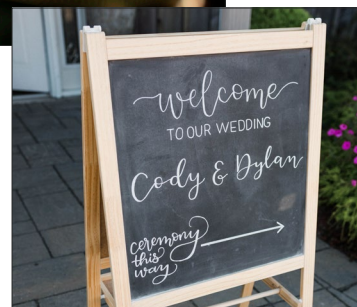 welcome
TO OUR WEDDING
Cody & Dylan
ceremony
this
way